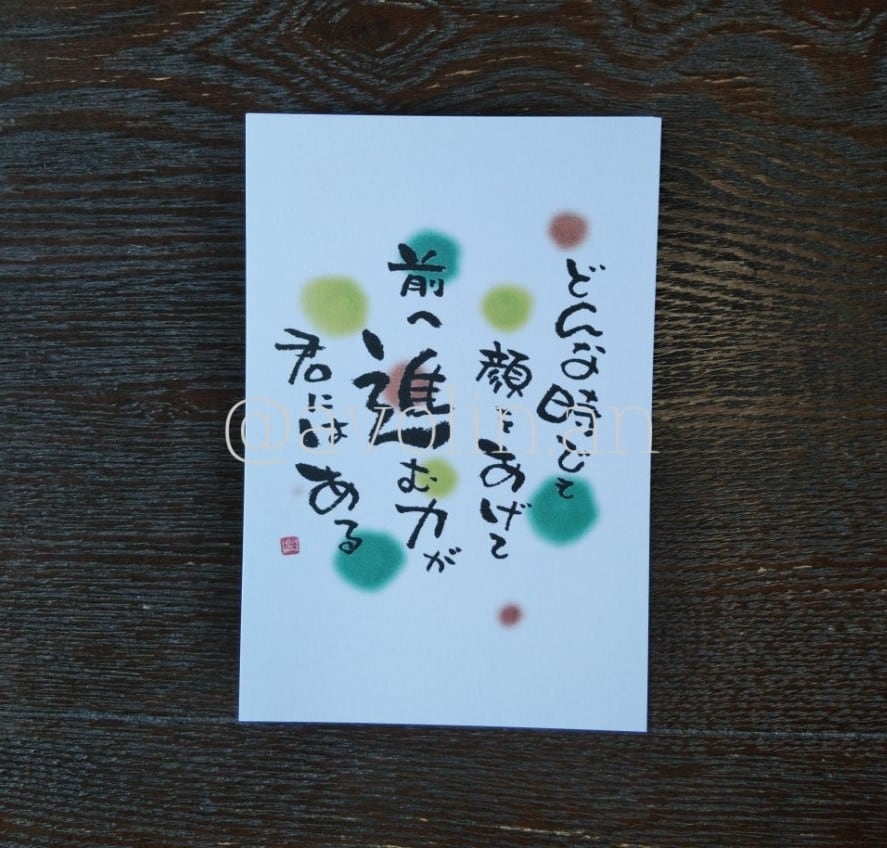 どんな時でも
顔をあげて
前へ進む力が
君にはある
@avolin.an